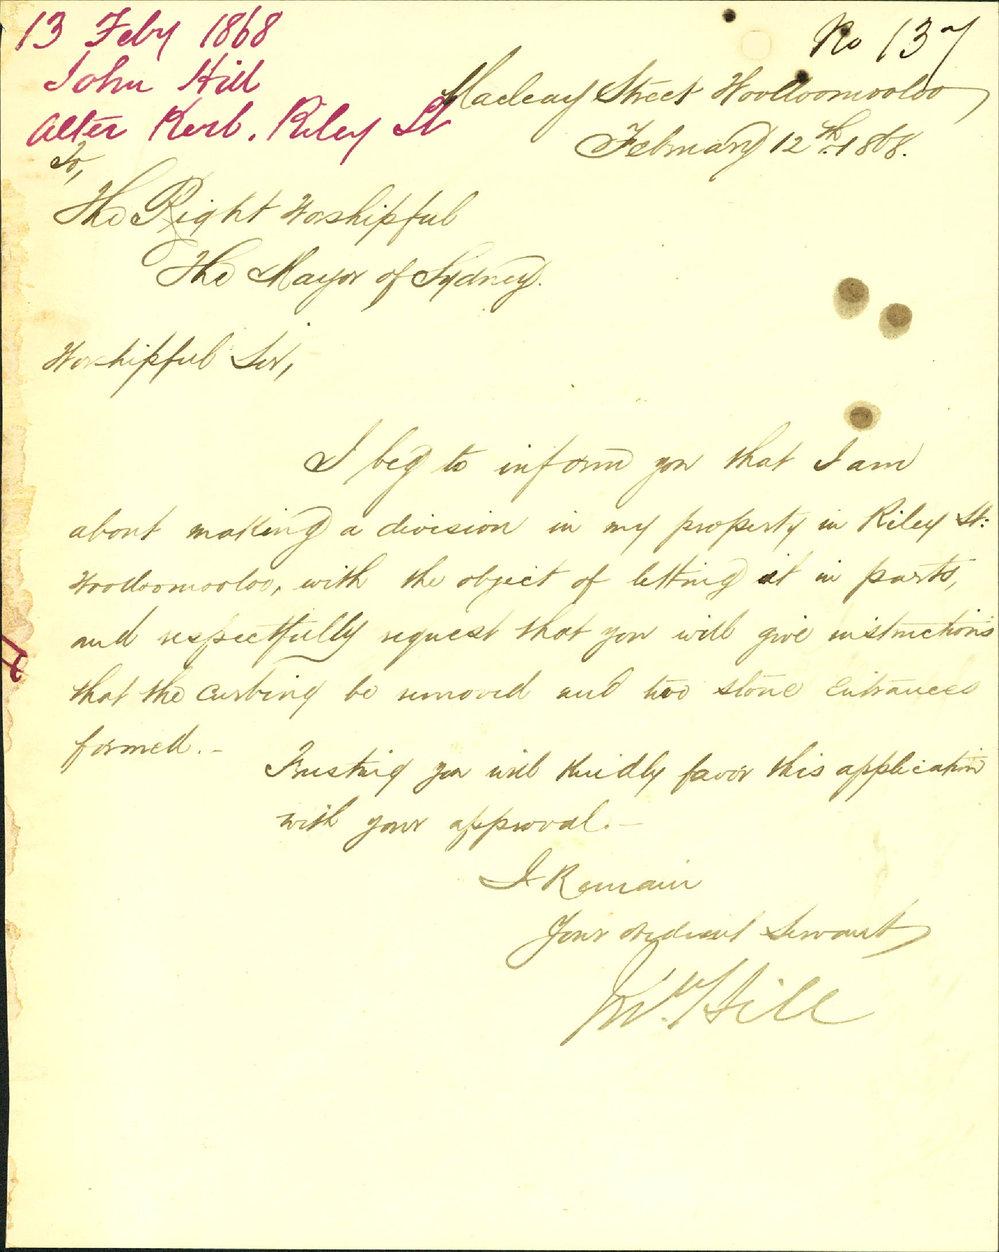 13 Feby 1868
John Hill
alter Kerb. Riley St
No 137
Macleay Street Woolloomooloo
February 12th 1868.
To,
The Right Worshipful
The Mayor of Sydney.
Worshipful Sir,
I beg to inform you that I am
about making a division in my property in Riley St:
Woolloomooloo, with the object of letting it in parts,
and respectfully request that you will give instructions
that the curbing be removed and two stone entrances
formed.-
Trusting you will kindly favor this application
with your approval.-
I Remain
Your obedient Servant
Jno. Hill